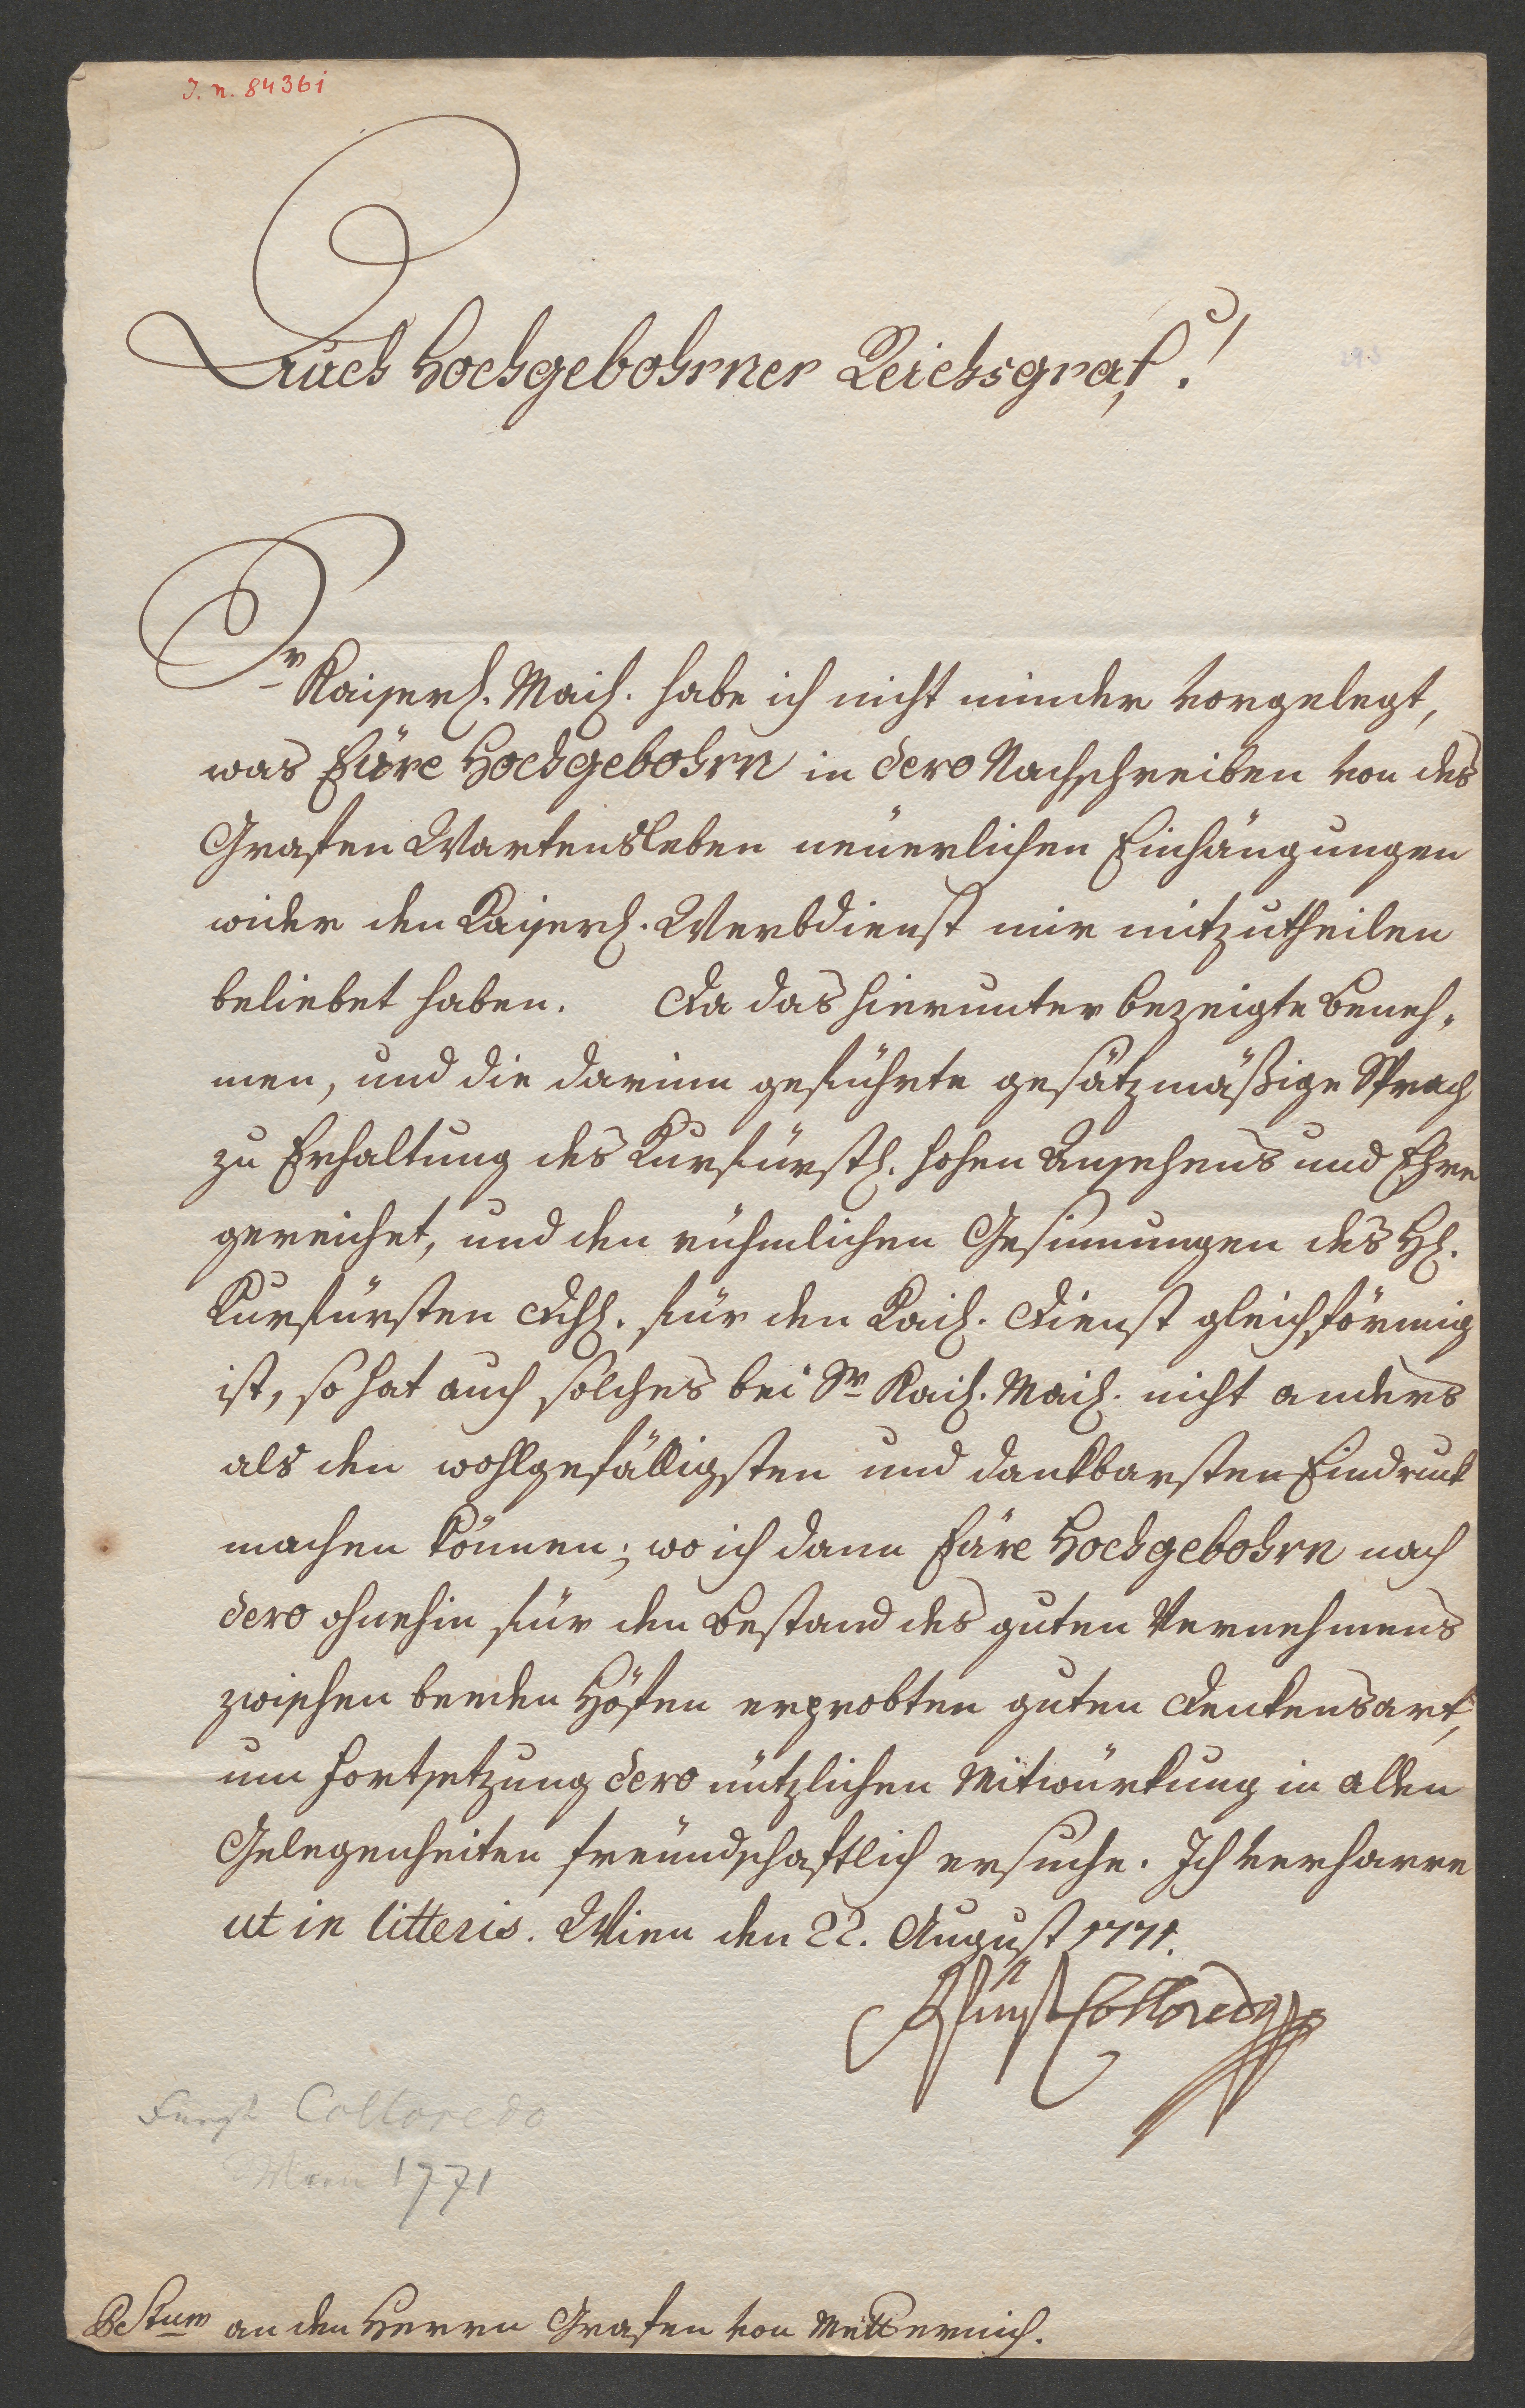 I. N. 84361
Auch Hochgebohrner Reichsgraf!
Sr Kaiserl. Mait. habe ich nicht minder vorgelegt,
was Eüre Hochgebohrn in dero Nachschreiben von des
Grafen Wartensleben neüerlichen Einhängungen
wider den Kaiserl. Werbdienst mir mitzutheilen
beliebet haben. Da das hierunter bezeigte Beneh-
men, und die darinn geführte gesätzmäßige Sprach
zu Erhaltung des Kurfürstl. hohen Ansehens und Ehre
gereichet, und den rühmlichen Gesinnungen des H.
Kurfürsten Dchl. für den Kais. Dienst gleichförmig
ist, so hat auch solches bei Sr Kais. Mait. nicht anders
als den wohlgefälligsten und dankbarsten Eindruck
machen können; wo ich dann Eüre Hochgebohrn nach
dero ohnehin für den Bestand des guten Vernehmens
zwischen beeden Höfen erprobten guten Denkensart,
um Fortsetzung dero nützlichen Mitwürkung in allen
Gelegenheiten freündschaftlich ersuche. Ich verharre
ut in litteris. Wien den 22. August 1771.
Fürst Colloredo
Fürst Colloredo
Wien 1771
PStum an den Herrn Grafen von Metternich.